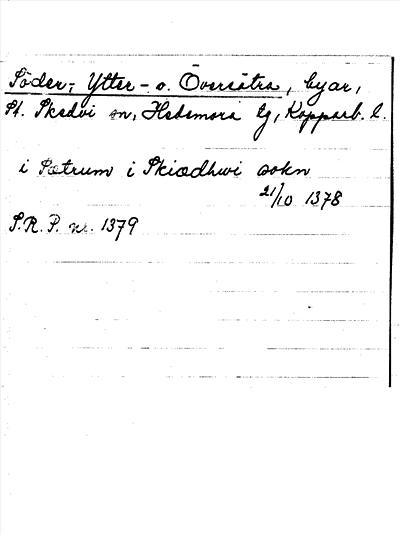 Söder-, Ytter- o. Översätra, byar,
St. Skedvi sn, Hedemora tg, Kopparb. l.
i Sætrum i Skiædhwi sokn
21/10 1378
S.R.P. nr. 1379